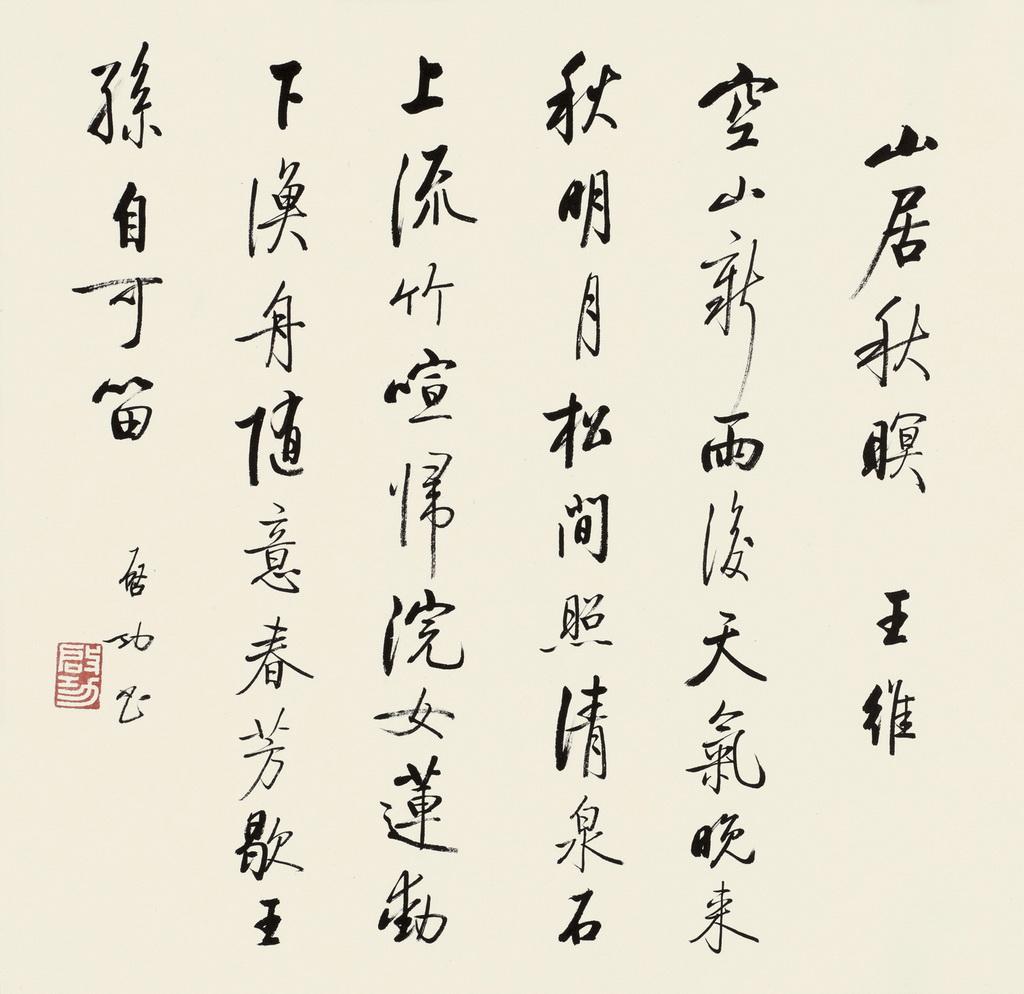 山居秋暝 王維
空山新雨後天氣晚来
秋明月松間照清泉石
上流竹喧歸浣女蓮動
下漁舟随意春芳歇王
孫自可笛
啓功書
啟功